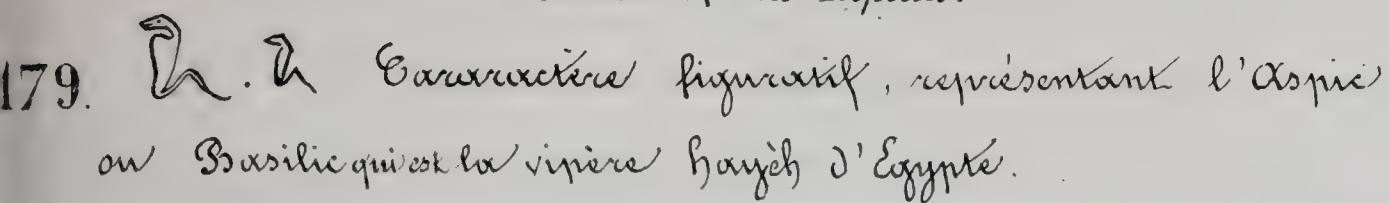 179. 𓆓 . 𓆓 Cararactère figuratif, représentant l'Aspic
ou Basilic qui est la vipère hayèh d'Egypte.